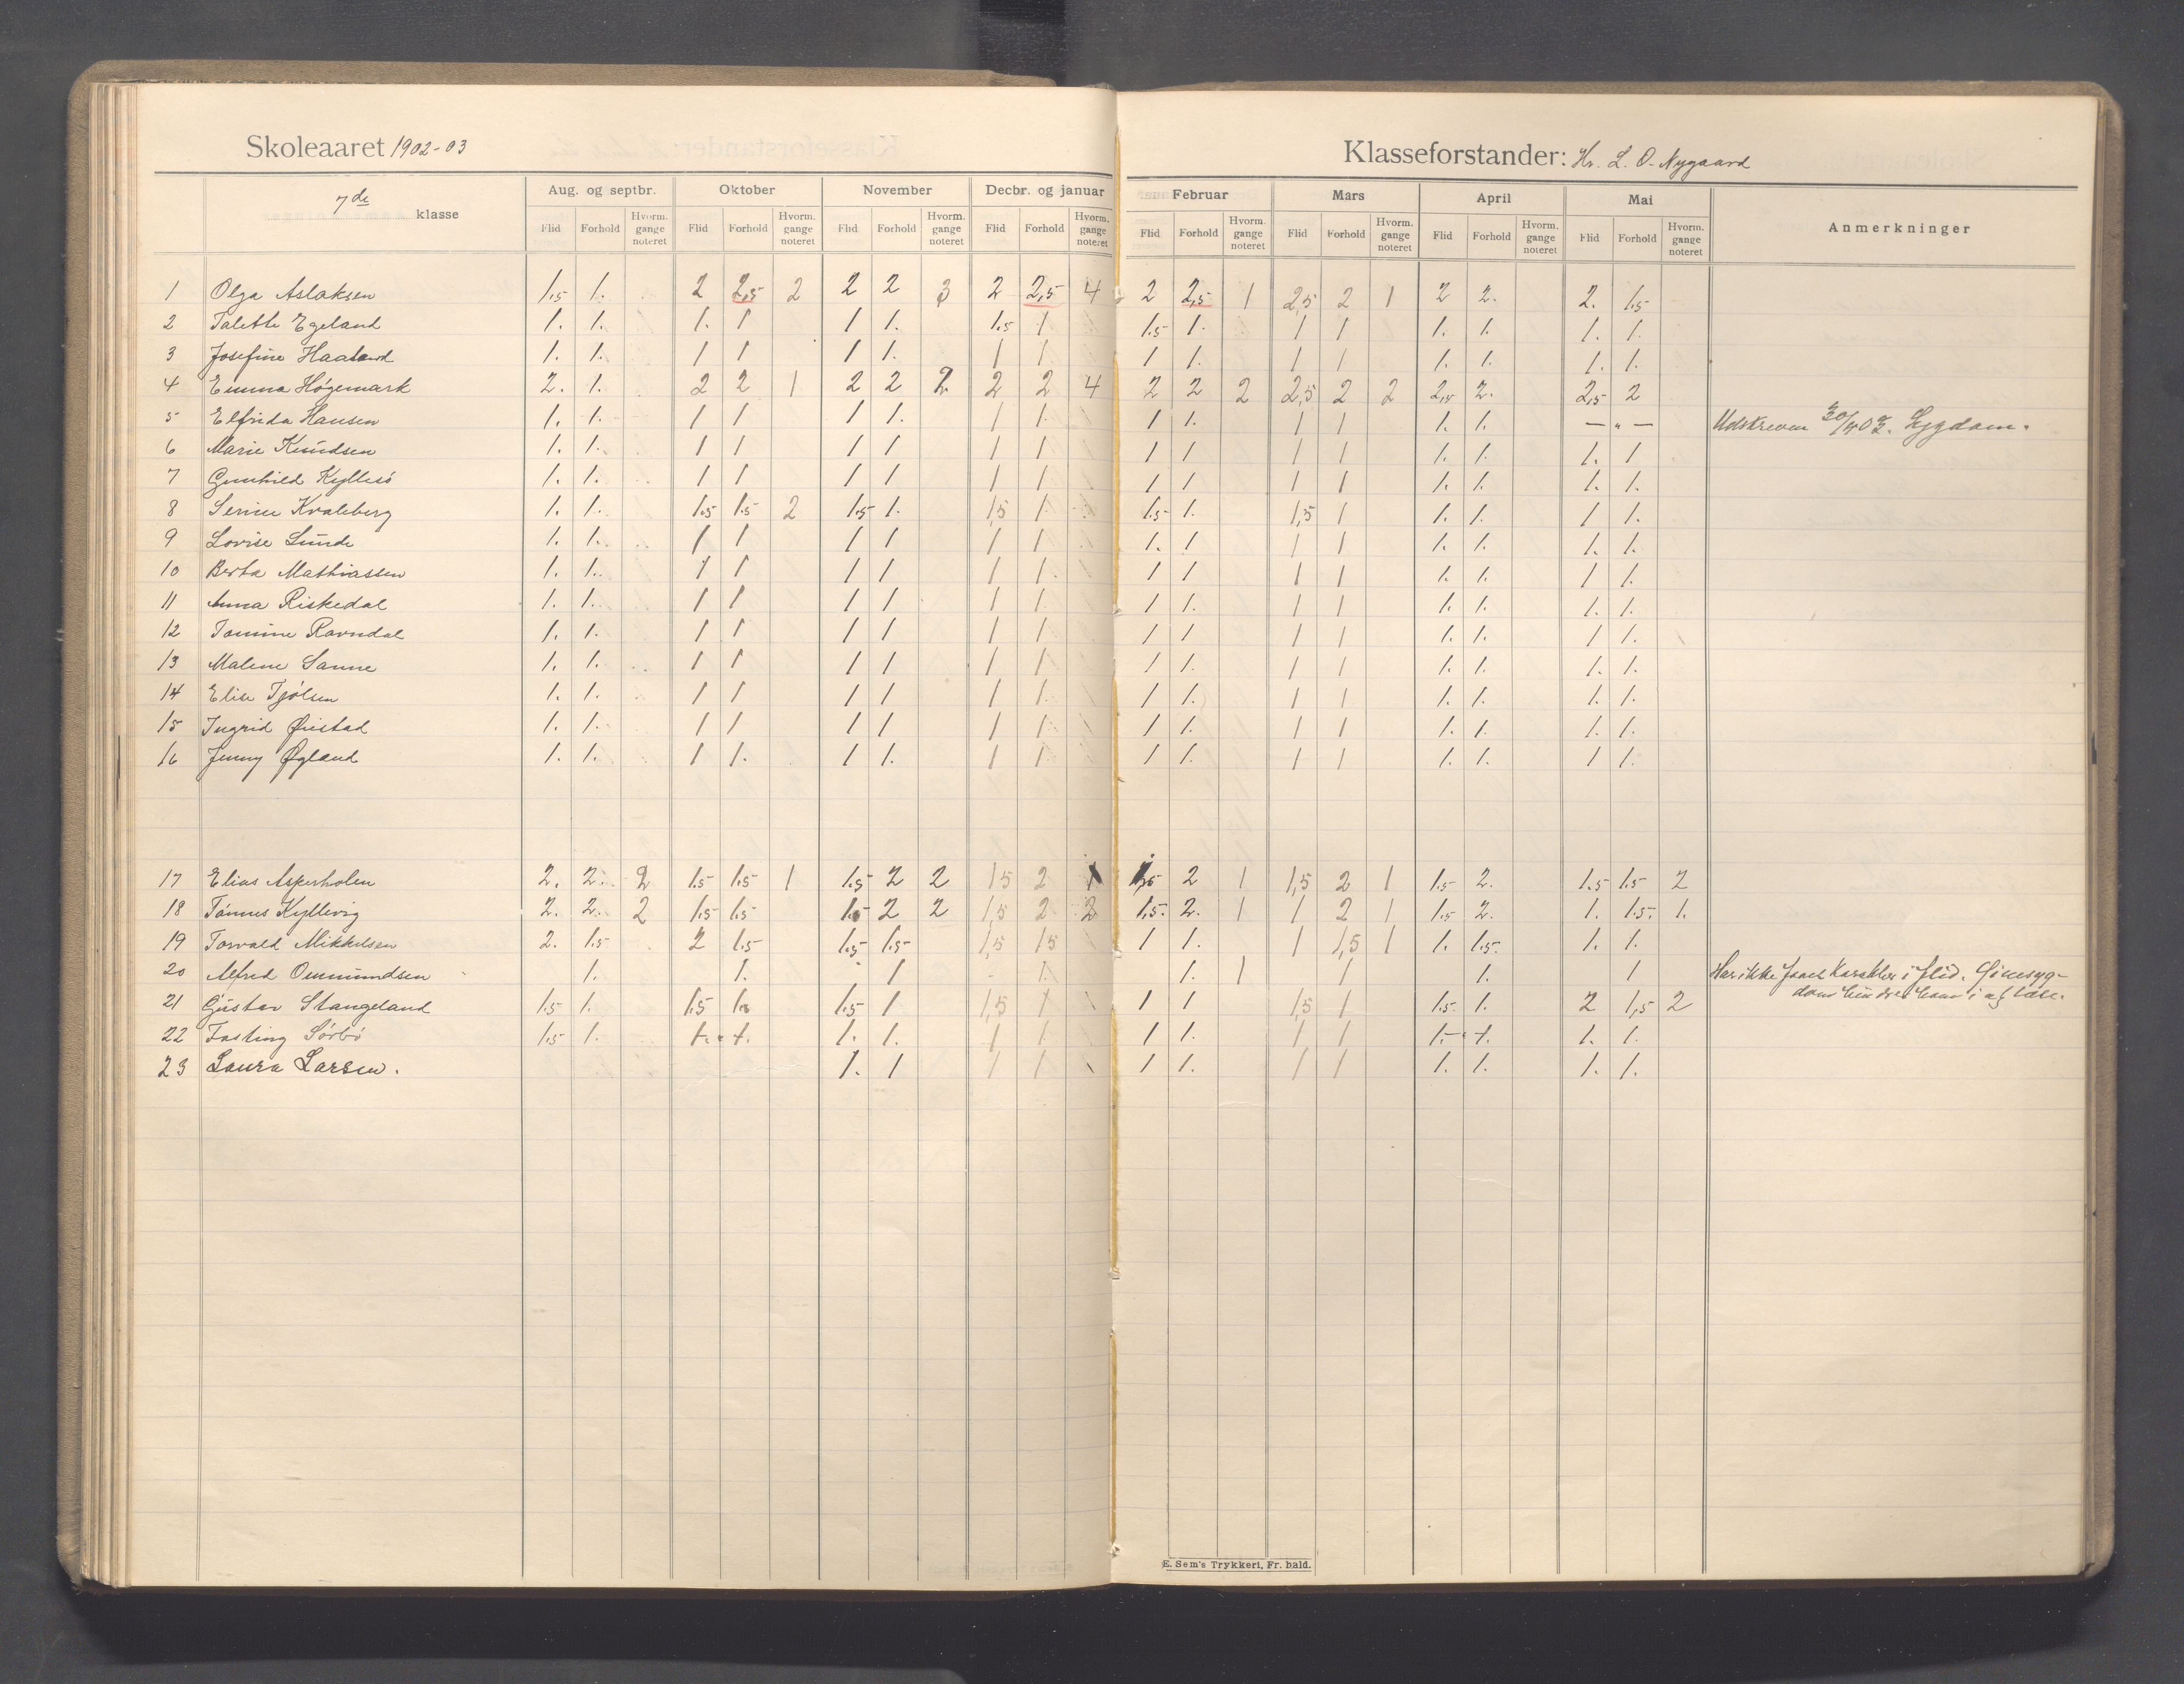 Skoleaaret 1902-03 Klasseforstander: Hr. L. O. Nygaard
7de klasse Aug. og septbr. Oktober November Decbr. og januar Februar Mars April Mai Anmerkninger
Flid Forhold Hvorm. gange noteret Flid Forhold Hvorm. gange noteret Flid Forhold Hvorm. gange noteret Flid Forhold Hvorm. gange noteret Flid Forhold Hvorm. gange noteret Flid Forhold Hvorm. gange noteret Flid Forhold Hvorm. gange noteret Flid Forhold Hvorm. gange noteret
1 Olga Aslaksen 1.5 1. 2 2,5 2 2 2 3 2 2,5 4 2 2,5 1 2,5 2 1 2 2. 2. 1.5
2 Talette Egeland 1. 1. 1. 1 1 1. 1.5 1 1.5 1. 1 1 1. 1. 1. 1.
3 Josefine Haaland 1. 1. 1 1 1 1. 1 1 1 1. 1 1 1. 1. 1. 1.
4 Emma Högemark 2. 1. 2 2 1 2 2 2 2 2 4 2 2 2 2,5 2 2 2,5 2. 2,5 2
5 Elfrida Hansen 1. 1. 1 1 1 1. 1 1. 1 1. 1 1 1. 1. — „ — Udskreven 30/4 03. Sygdom.
6 Marie Knudsen 1. 1. 1 1 1 1 1 1 1 1 1 1 1. 1. 1. 1
7 Gunhild Kyllesö 1. 1. 1 1 1 1 1 1 1 1 1 1 1. 1. 1. 1.
8 Serine Kvaleberg 1. 1. 1.5 1.5 2 1.5 1. 1,5 1 1.5 1. 1,5 1 1. 1. 1 1.
9 Lovise Lunde 1. 1. 1 1 1 1 1 1 1. 1 1 1 1. 1. 1. 1.
10 Berta Mathiassen 1. 1. 1 1 1 1 1 1 1 1 1 1 1. 1. 1 1.
11 Anna Riskedal 1. 1. 1 1 1 1 1 1 1 1. 1 1 1. 1. 1. 1.
12 Tomine Ravndal 1. 1. 1 1 1 1 1 1 1 1 1 1 1. 1. 1 1.
13 Malene Sanne 1. 1. 1 1 1 1 1 1 1 1. 1 1 1. 1. 1. 1.
14 Elise Tjölsen 1. 1. 1 1 1 1 1 1. 1 1. 1 1 1. 1. 1. 1.
15 Ingrid Øiestad 1. 1. 1 1 1 1 1 1 1 1. 1 1 1. 1. 1. 1.
16 Jenny Øgland 1. 1. 1 1. 1 1. 1 1 1 1. 1 1 1. 1. 1 1.
17 Elias Asperholen 2. 2. 2 1.5 1.5 1 1.5 2 2 1 5 2 1 1,5 2 1 1,5 2 1 1.5 2. 1.5 1.5 2
18 Tönnes Kyllevig 2. 2. 2 1.5 1.5 1.5 2 2 1,5 2 2 1.5. 2. 1 1 2 1 1.5 2. 1. 1.5. 1.
19 Torvald Mikkelsen 2. 1.5 2 1.5 1.5 1.5 1,5 1 5 1 1. 1 1,5 1 1. 1.5. 1. 1.
20 Alfred Ommundsen 1. 1. 1 1. 1. 1 1 1. 1 Har ikke faaet Karakter i flid. Öiesyg-
dom hindrer ham i at læse.
21 Gustav Stangeland 1.5 1. 1.5 1. 1.5 1 1,5 1 1 1 1,5 1 1.5 1. 2 1,5 2
22 Fasting Sörbö 1.5 1. 1. 1. 1. 1. 1 1 1 1. 1 1 1. 1. 1. 1.
23 Laura Larsen. 1. 1 1 1 1 1. 1 1 1. 1. 1. 1.
E. Sem's Trykkeri, Fr. hald.